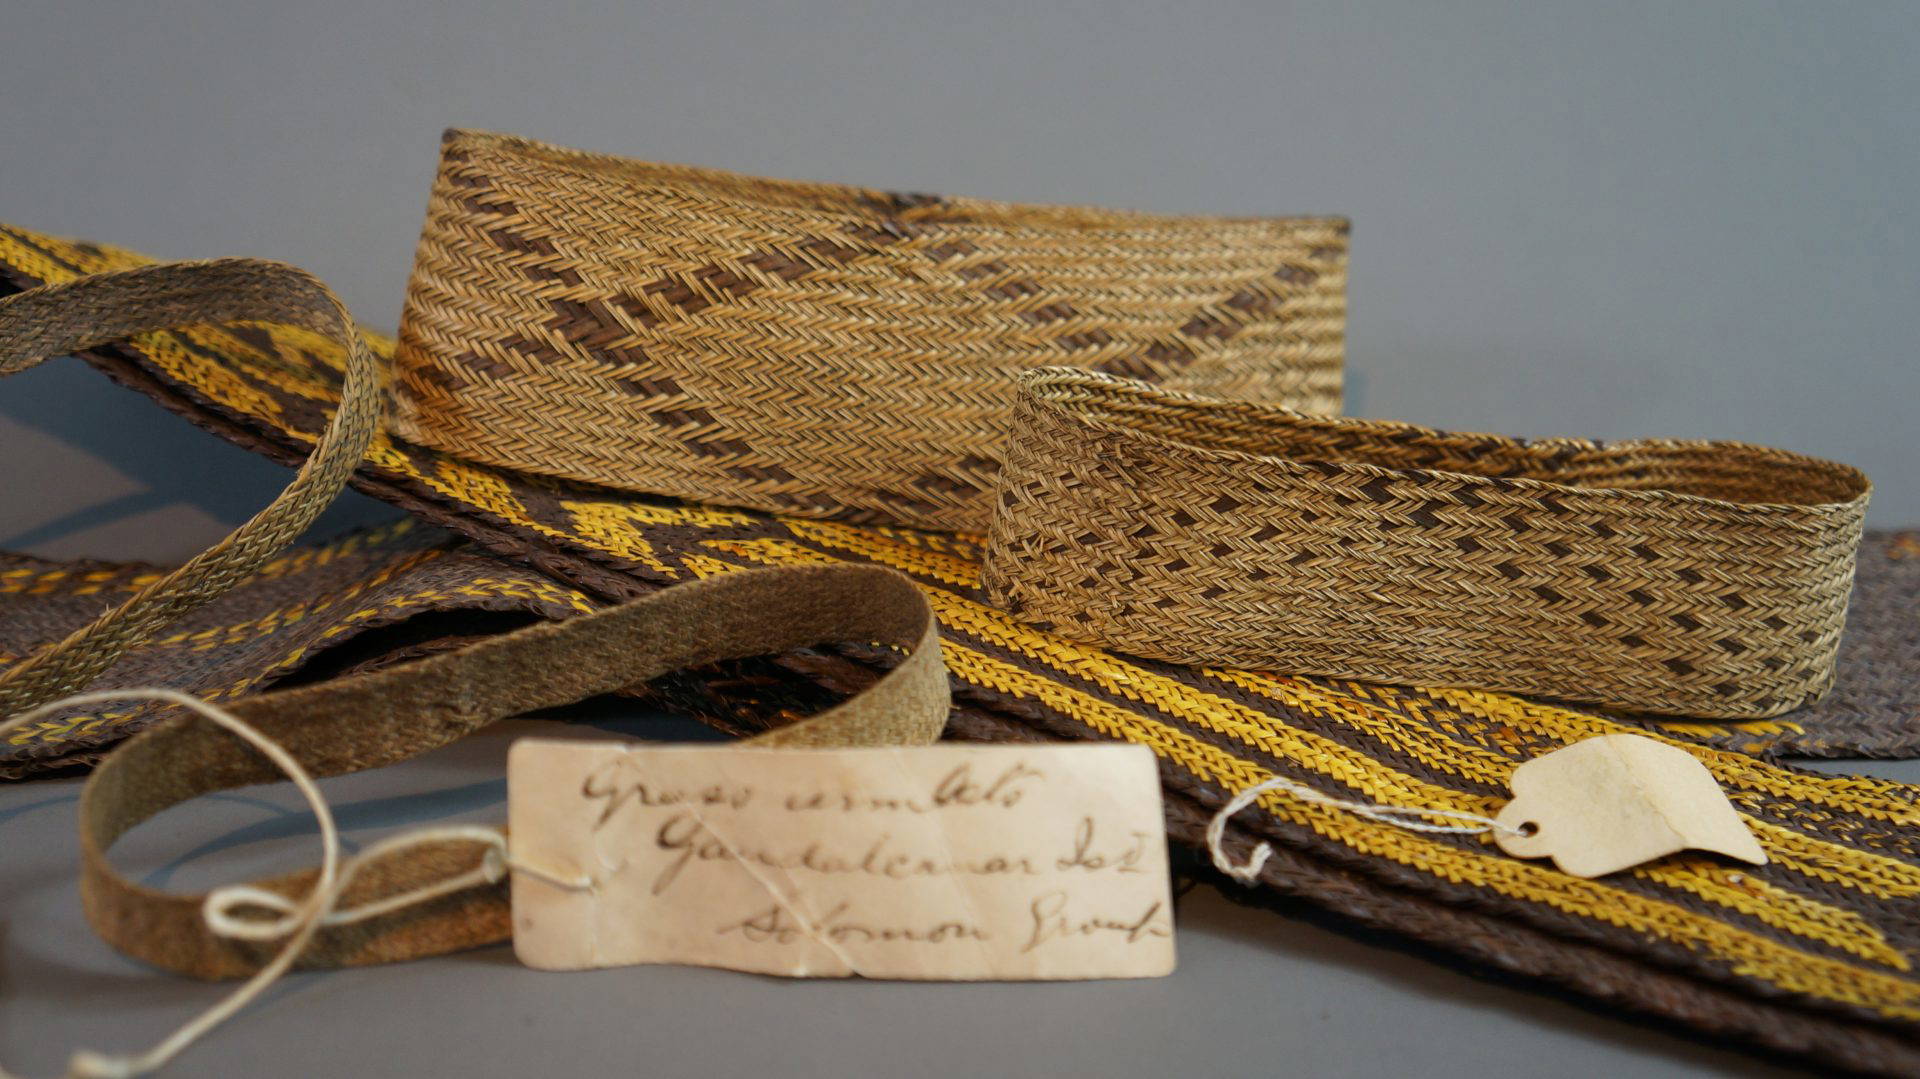 Grass armlets
Guadalcanar Isd
Solomon Group